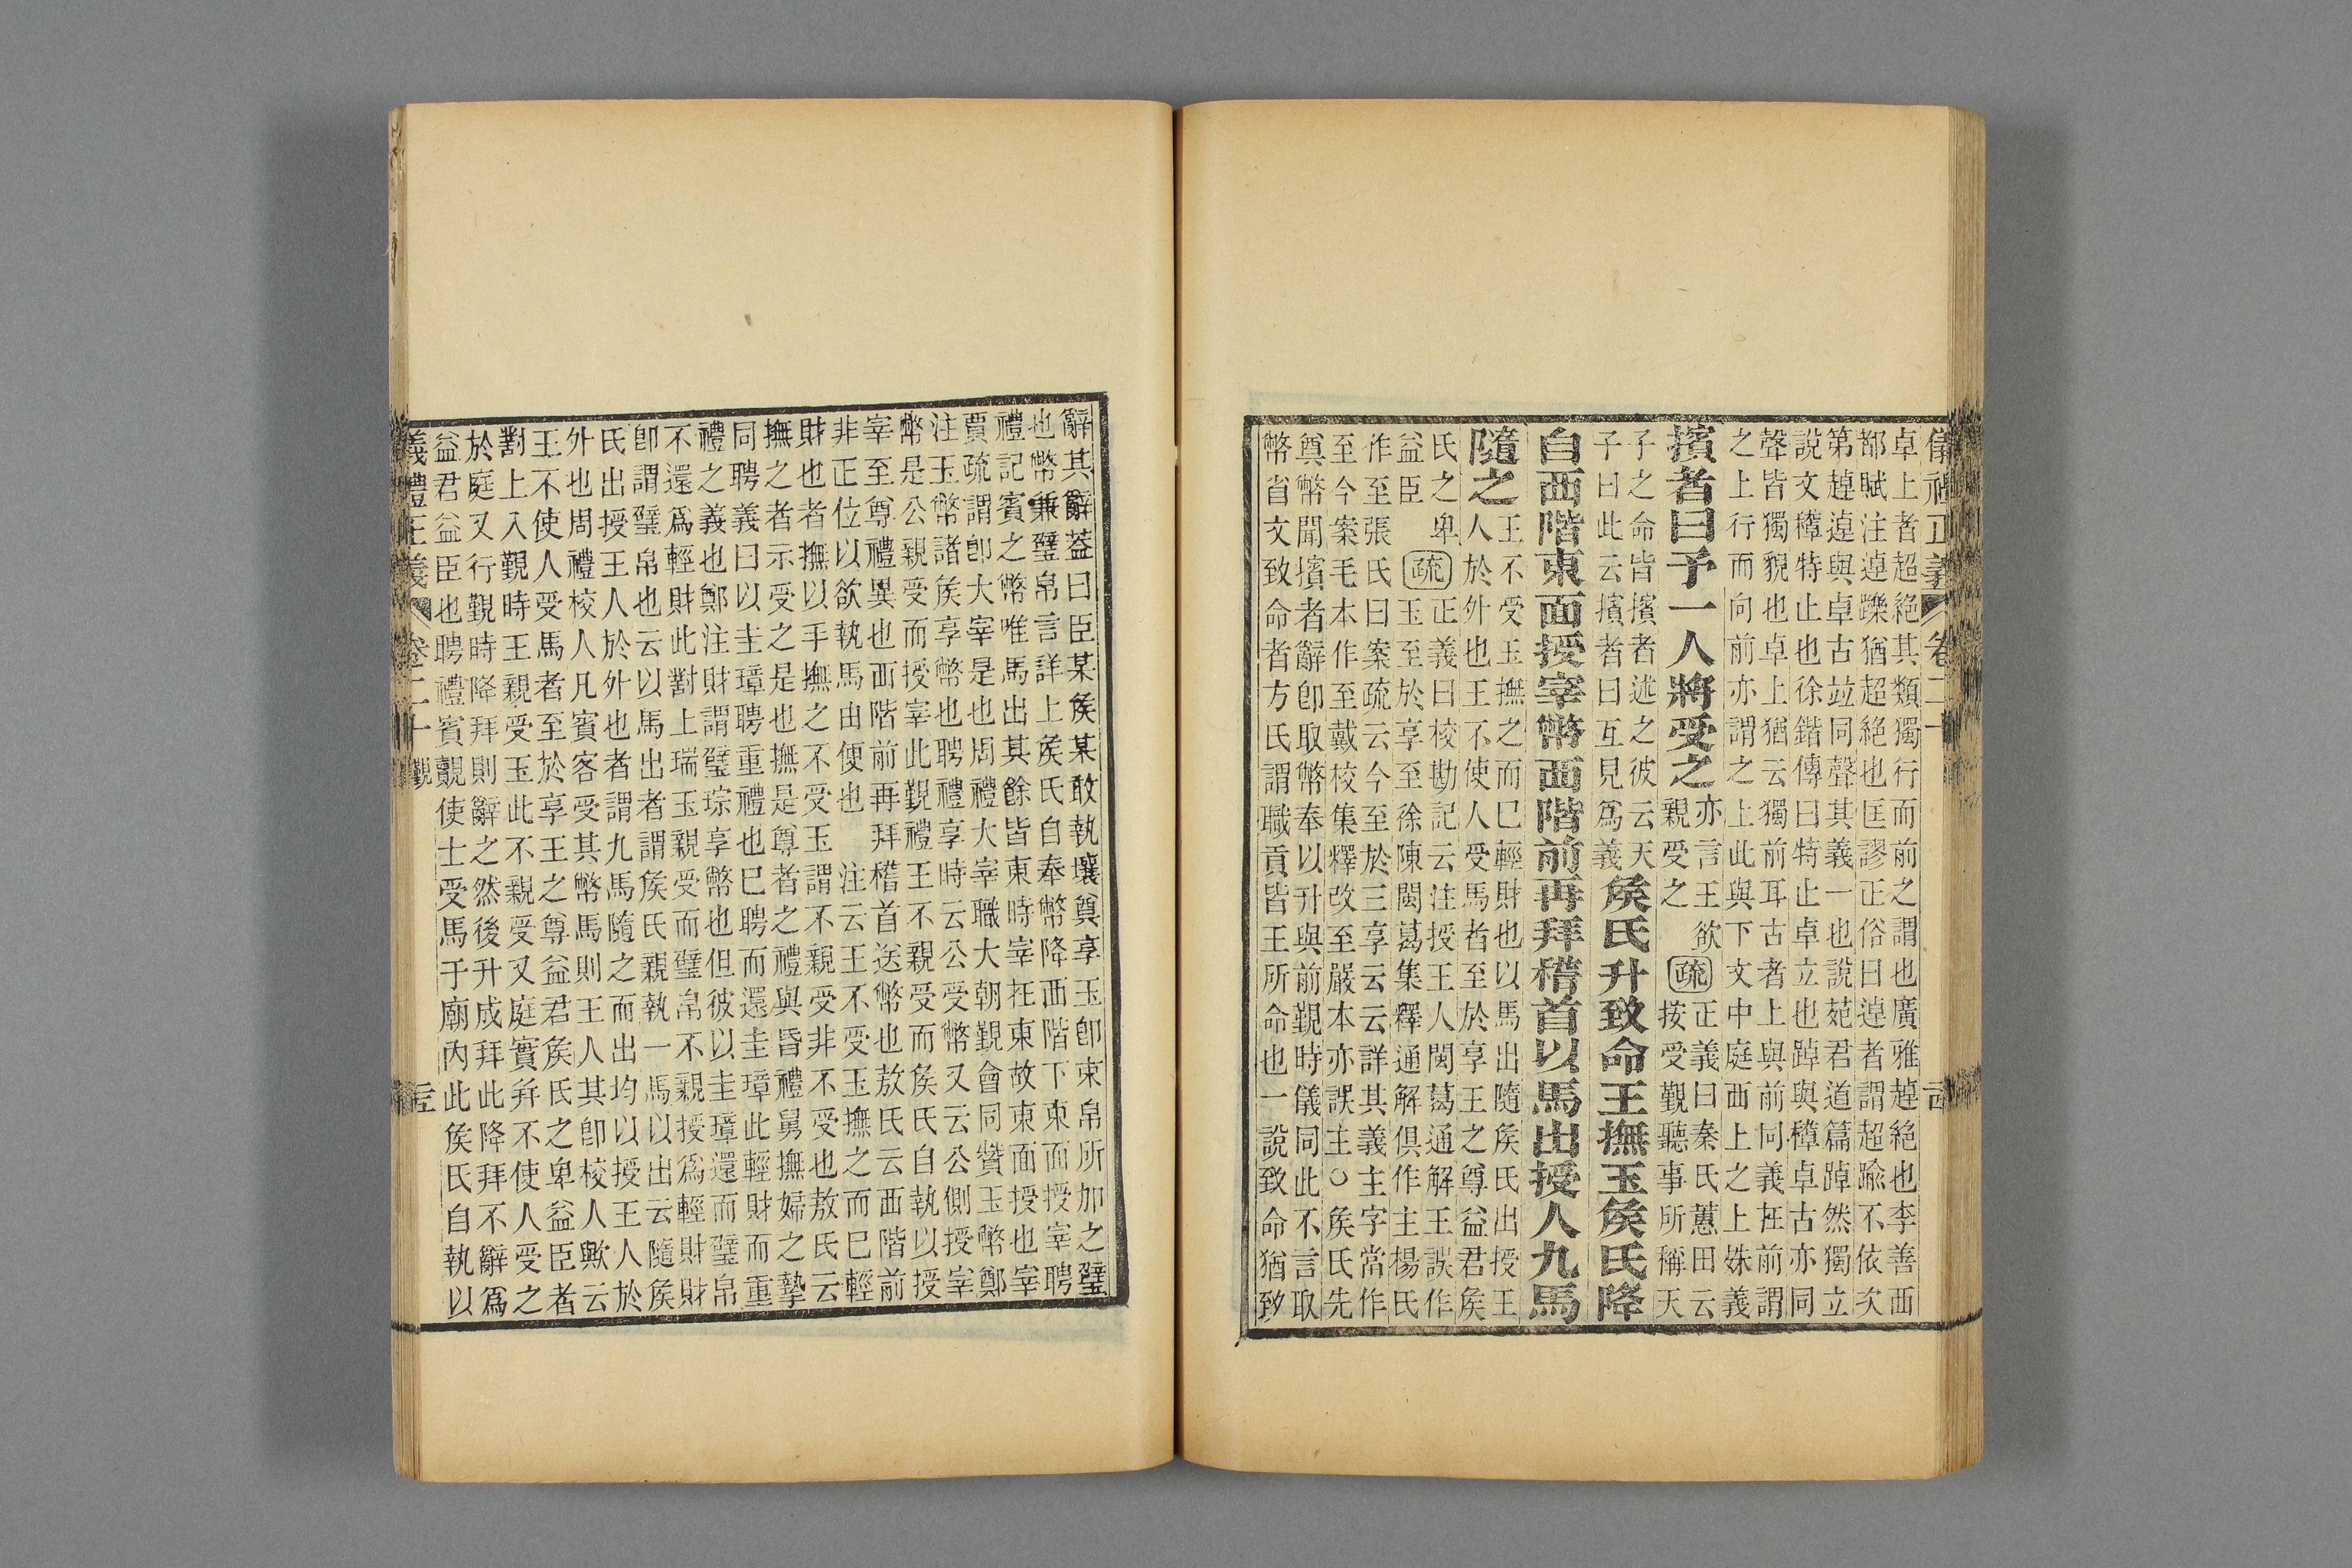 儀禮正義 卷二十
卓上者超絕其類獨行而前之謂也廣雅趠絕也李善西
都賦注逴躒猶超絕也匡謬正俗曰逴者謂超踰不依次
第趠逴與卓古竝同聲其義一也說苑君道篇踔然獨立
說文穛特止也徐鍇傳曰特止卓立也踔與穛卓古亦同
聲皆獨貌也卓上猶云獨前耳古者上與前同義在前謂
之上行而向前亦謂之上此與下文中庭西上之上姝義
擯者曰予一人將受之
亦言王欲
親受之
疏
正義曰秦氏蕙田云
按受覲聽事所稱天
子之命皆擯者述之彼云天
子曰此云擯者曰互見爲義
矦氏升致命王撫玉矦氏降
自西階東面授宰幣西階前再拜稽首以馬出授人九馬
隨之
王不受玉撫之而已輕財也以馬出隨矦氏出授王
人於外也王不使人受馬者至於享王之尊益君矦
氏之卑
益臣
疏
正義曰校勘記云注授王人閩葛通解王誤作
玉至於享至徐陳閩葛集釋通解俱作主楊氏
作至張氏曰案疏云今至於三享云云詳其義主字當作
至今案毛本作至戴校集釋改至嚴本亦誤主○矦氏先
奠幣聞擯者辭卽取幣奉以升與前覲時儀同此不言取
幣省文致命者方氏謂職貢皆王所命也一說致命猶致
辭其辭蓋曰臣某矦某敢執壤奠享玉卽束帛所加之璧
也幣兼璧帛言詳上矦氏自奉幣降西階下東面授宰聘
禮記賓之幣唯馬出其餘皆東時宰在東故東面授也宰
賈疏謂卽大宰是也周禮大宰職大朝覲會同贊玉幣鄭
注玉幣諸矦享幣也聘禮享時云公受幣又云公側授宰
幣是公親受而授宰此覲禮王不親受而矦氏自執以授
宰至尊禮異也西階前再拜稽首送幣也敖氏云西階前
非正位以欲執馬由便也 注云王不受玉撫之而已輕
財也者撫以手撫之不受玉謂不親受非不受也敖氏云
撫之者示受之是也撫是尊者之禮與昏禮舅撫婦之摯
同聘義曰以圭璋聘重禮也已聘而還圭璋此輕財而重
禮之義也鄭注財謂璧琮享幣也但彼以圭璋還而璧帛
不還爲輕財此對上瑞玉親受而璧帛不親授爲輕財財
卽謂璧帛也云以馬出者謂矦氏親執一馬以出云隨矦
氏出授王人於外也者謂九馬隨之而出均以授王人於
外也周禮校人凡賓客受其幣馬則王人其卽校人歟云
王不使人受馬者至於享王之尊益君矦氏之卑益臣者
對上入覲時王親受玉此不親受又庭實幷不使人受之
於庭又行覲時降拜則辭之然後升成拜此降拜不辭爲
益君益臣也聘禮賓覿使士受馬于廟內此矦氏自執以
義禮正義 卷二十 覲